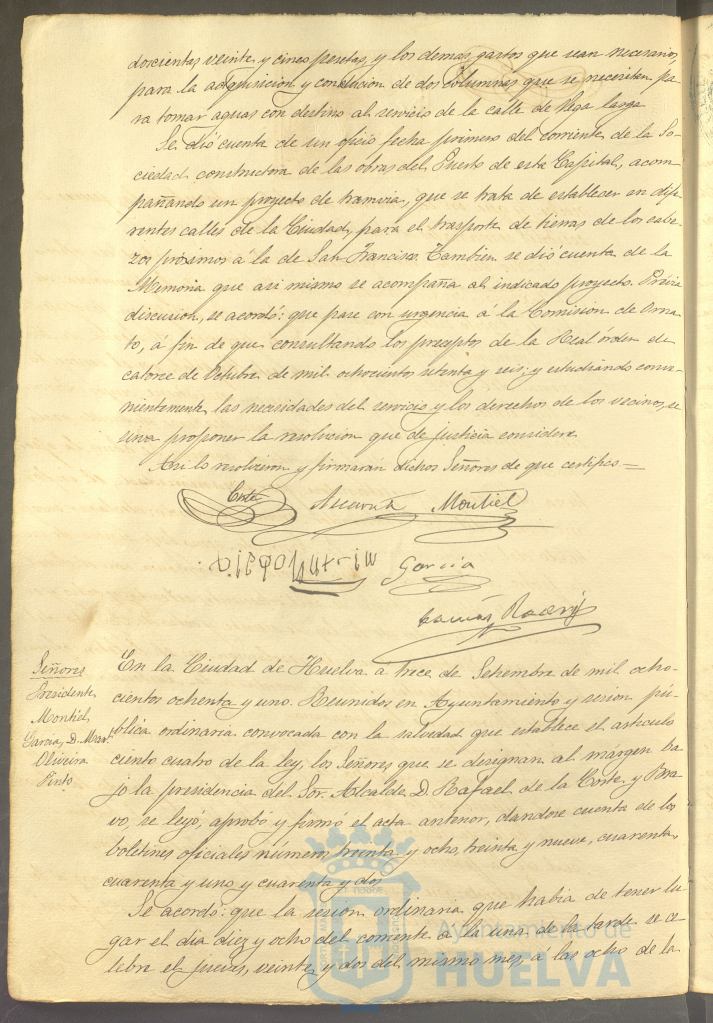 doscientas veinte y cinco pesetas, y los demas gastos que sean necesarios,
para la adquisicion y conduccion de dos columnas que se necesitan pa
ra tomar aguas con destino al servicio de la calle de Vega larga
Se dió cuenta de un oficio fecha primero del corriente de la So-
ciedad constructora de las obras del Puerto de esta Capital, acom
pañando un proyecto de tramvia, que se trata de establecer en dife
rentes calles de la Ciudad, para el trasporte de tierras de los cabe
zos próximos á la de San Francisco. Tambien se dió cuenta de la
Memoria que asi mismo se acompaña al indicado proyecto. Previa
discusion, se acordó: que pase con urgencia á la Comision de Orna
to, á fin de que consultando los preceptos de la Real órden de
catorce de Octubre de mil ochocientos setenta y seis; y estudiando conve-
nientemente, las necesidades del servicio y los derechos de los vecinos, se
sirva proponer la resolucion que de justicia considere
Asi lo resolvieron y firmarán dichos Señores de que certifico =
Corte Montiel
Garcia
Señores
Presidente
Montiel
Garcia, D. Man.
Oliveira
Pinto
En la Ciudad de Huelva á trece de Setiembre de mil ocho-
cientos ochenta y uno. Reunidos en Ayuntamiento y sesion pú-
blica ordinaria convocada con la salvedad que establece el artículo
ciento cuatro de la ley, los Señores que se designan al margen ba
jo la presidencia del Sor. Alcalde D. Rafael de la Corte y Bra
vo, se leyó, aprobo y firmó el acta anterior, dandose cuenta de los
boletines oficiales números treinta y ocho, treinta y nueve, cuarenta,
cuarenta y uno y cuarenta y dos
Se acordó: que la sesion ordinaria que habia de tener lu
gar el dia diez y ocho del corriente á la una de la tarde se ce
lebre el jueves, veinte y dos del mismo mes, á las ocho de la
Ayuntamiento de
HUELVA